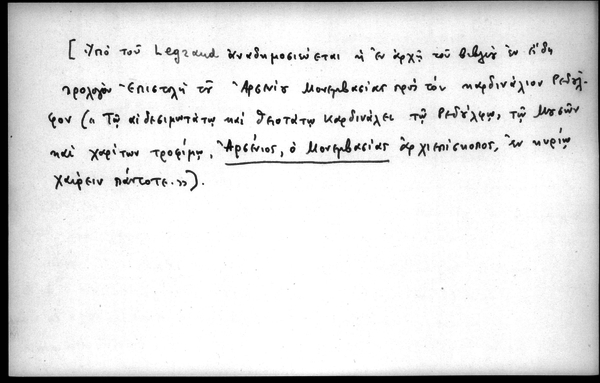 [Ὑπὸ τοῦ Legrand ἀναδημοσιεύεται ἡ ἐν ἀρχῇ τοῦ βιβλίου ἐν εἴδει
προλόγου ἐπιστολὴ τοῦ Ἀρσενίου Μονεμβασίας πρὸς τὸν καρδινάλιον Ρεδύλ-
φον (« Τῷ αἰδεσιμωτάτῳ καὶ θειοτάτῳ καρδινάλει τῷ Ρεδύλφῳ, τῷ Μουσῶν
καὶ χαρίτων τροφίμῳ, Ἀρσένιος, ὁ Μονεμβασίας ἀρχιεπίσκοπος, ἐν κυρίῳ
χαίρειν πάντοτε.»).